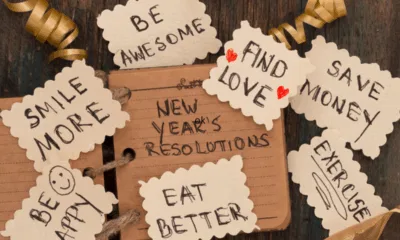 BE
AWESOME
SMILE
MORE
FIND
LOVE
SAVE
MONEY
NEW
YEAR'S
RESOLUTIONS
EXERCISE
BE
HAPPY
EAT
BETTER